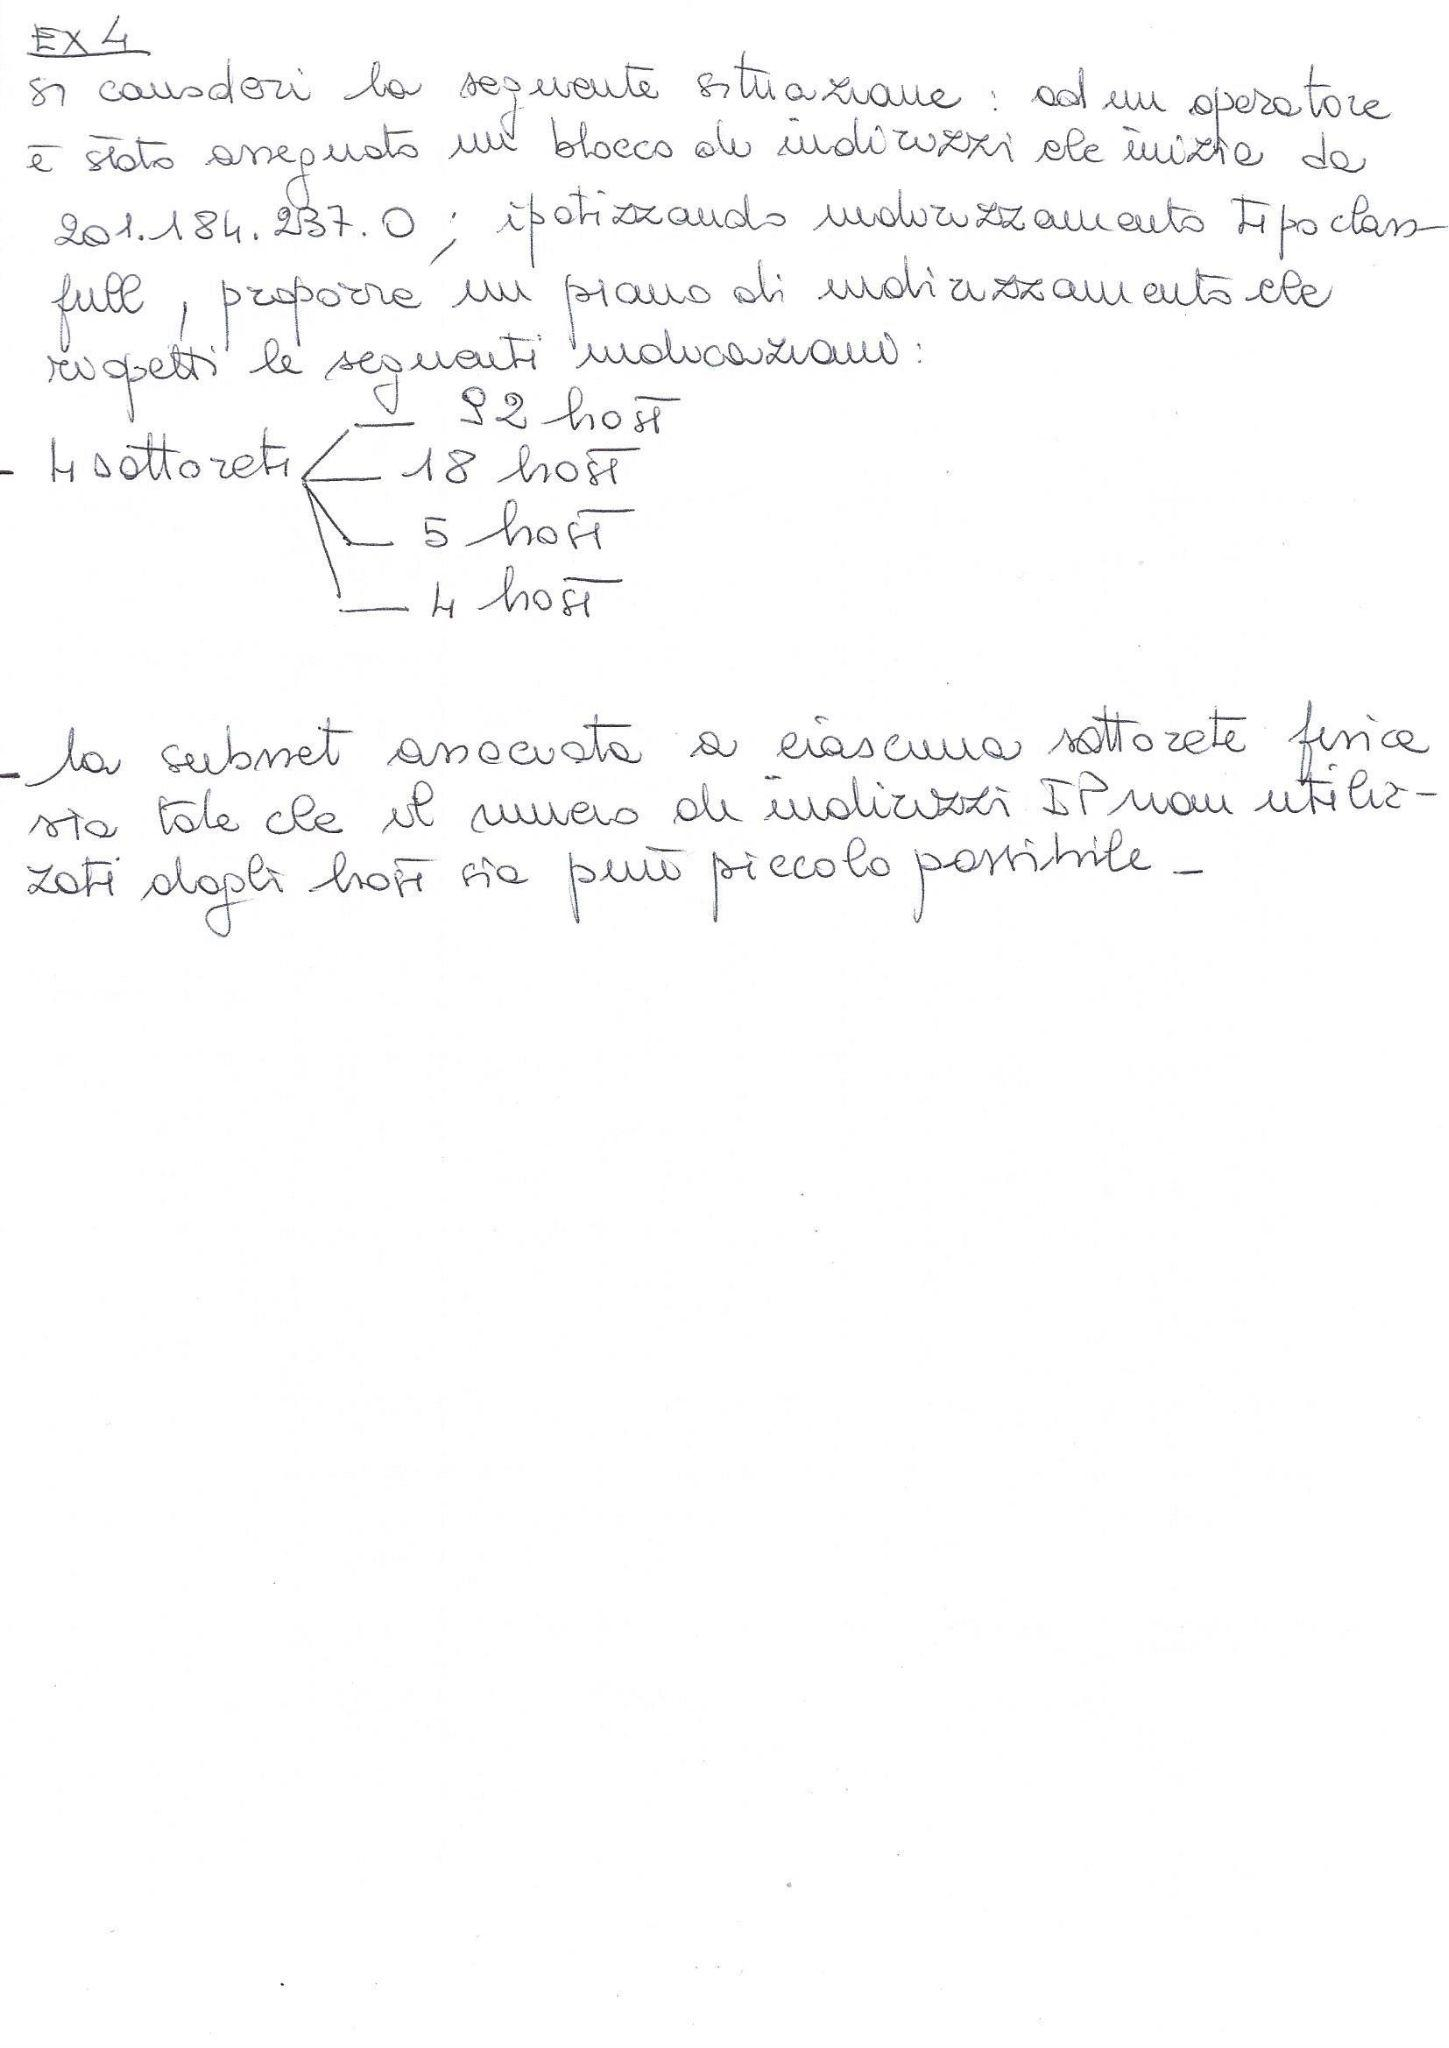 EX 4
si consideri la seguente situazione : ad un operatore
è stato assegnato un blocco di indirizzi che inizia da
201.184.237.0 ; ipotizzando indirizzamento tipo class-
full , proporre un piano di indirizzamento che
rispetti le seguenti indicazioni :
- 4 sottoreti — 92 host
— 18 host
— 5 host
— 4 host
- la subnet associata a ciascuna sottorete fisica
sia tale che il numero di indirizzi IP non utiliz-
zati dagli host sia più piccolo possibile -